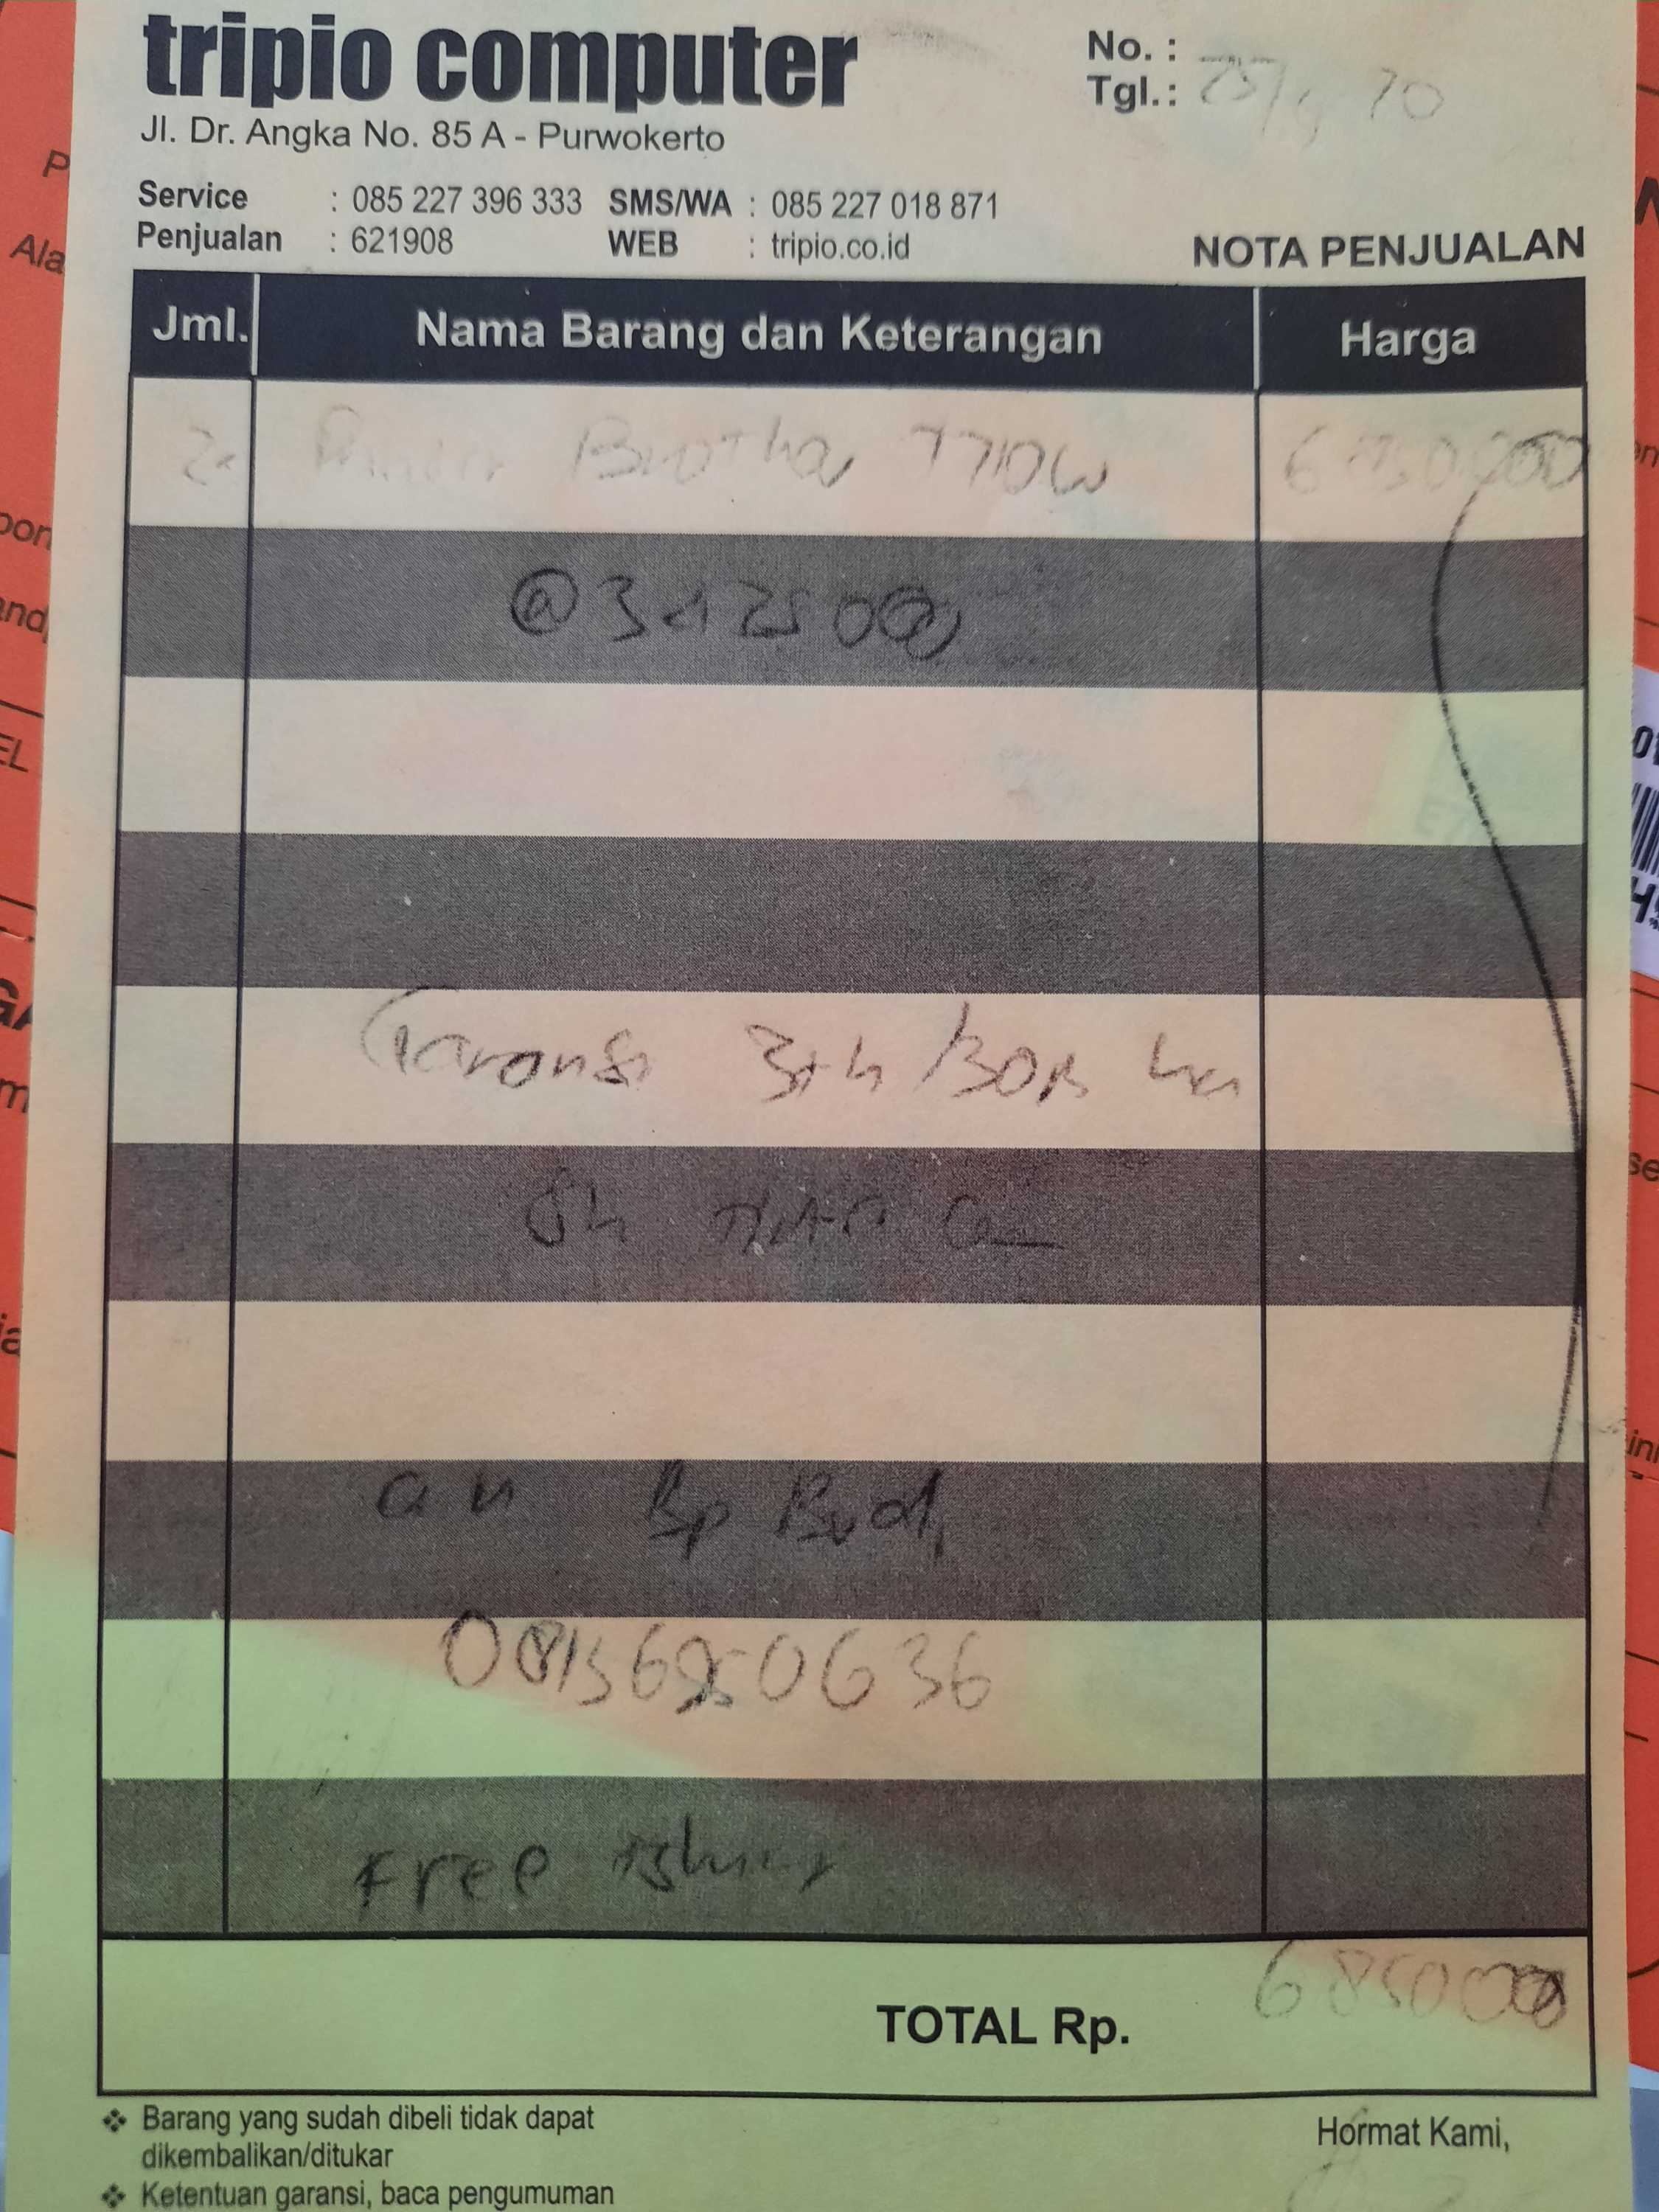 tripio computer
Jl. Dr. Angka No. 85 A - Purwokerto
No. :
Tgl.: 25/
Service : 085 227 396 333 SMS/WA : 085 227 018 871
Penjualan : 621908 WEB : tripio.co.id
NOTA PENJUALAN
Jml. Nama Barang dan Keterangan Harga
2x Printer Brother T710W 6850000
@3425000
Garansi 3th/30rb
an Bp Budi
Free
TOTAL Rp. 6850000
❖ Barang yang sudah dibeli tidak dapat
dikembalikan/ditukar
❖ Ketentuan garansi, baca pengumuman
Hormat Kami,